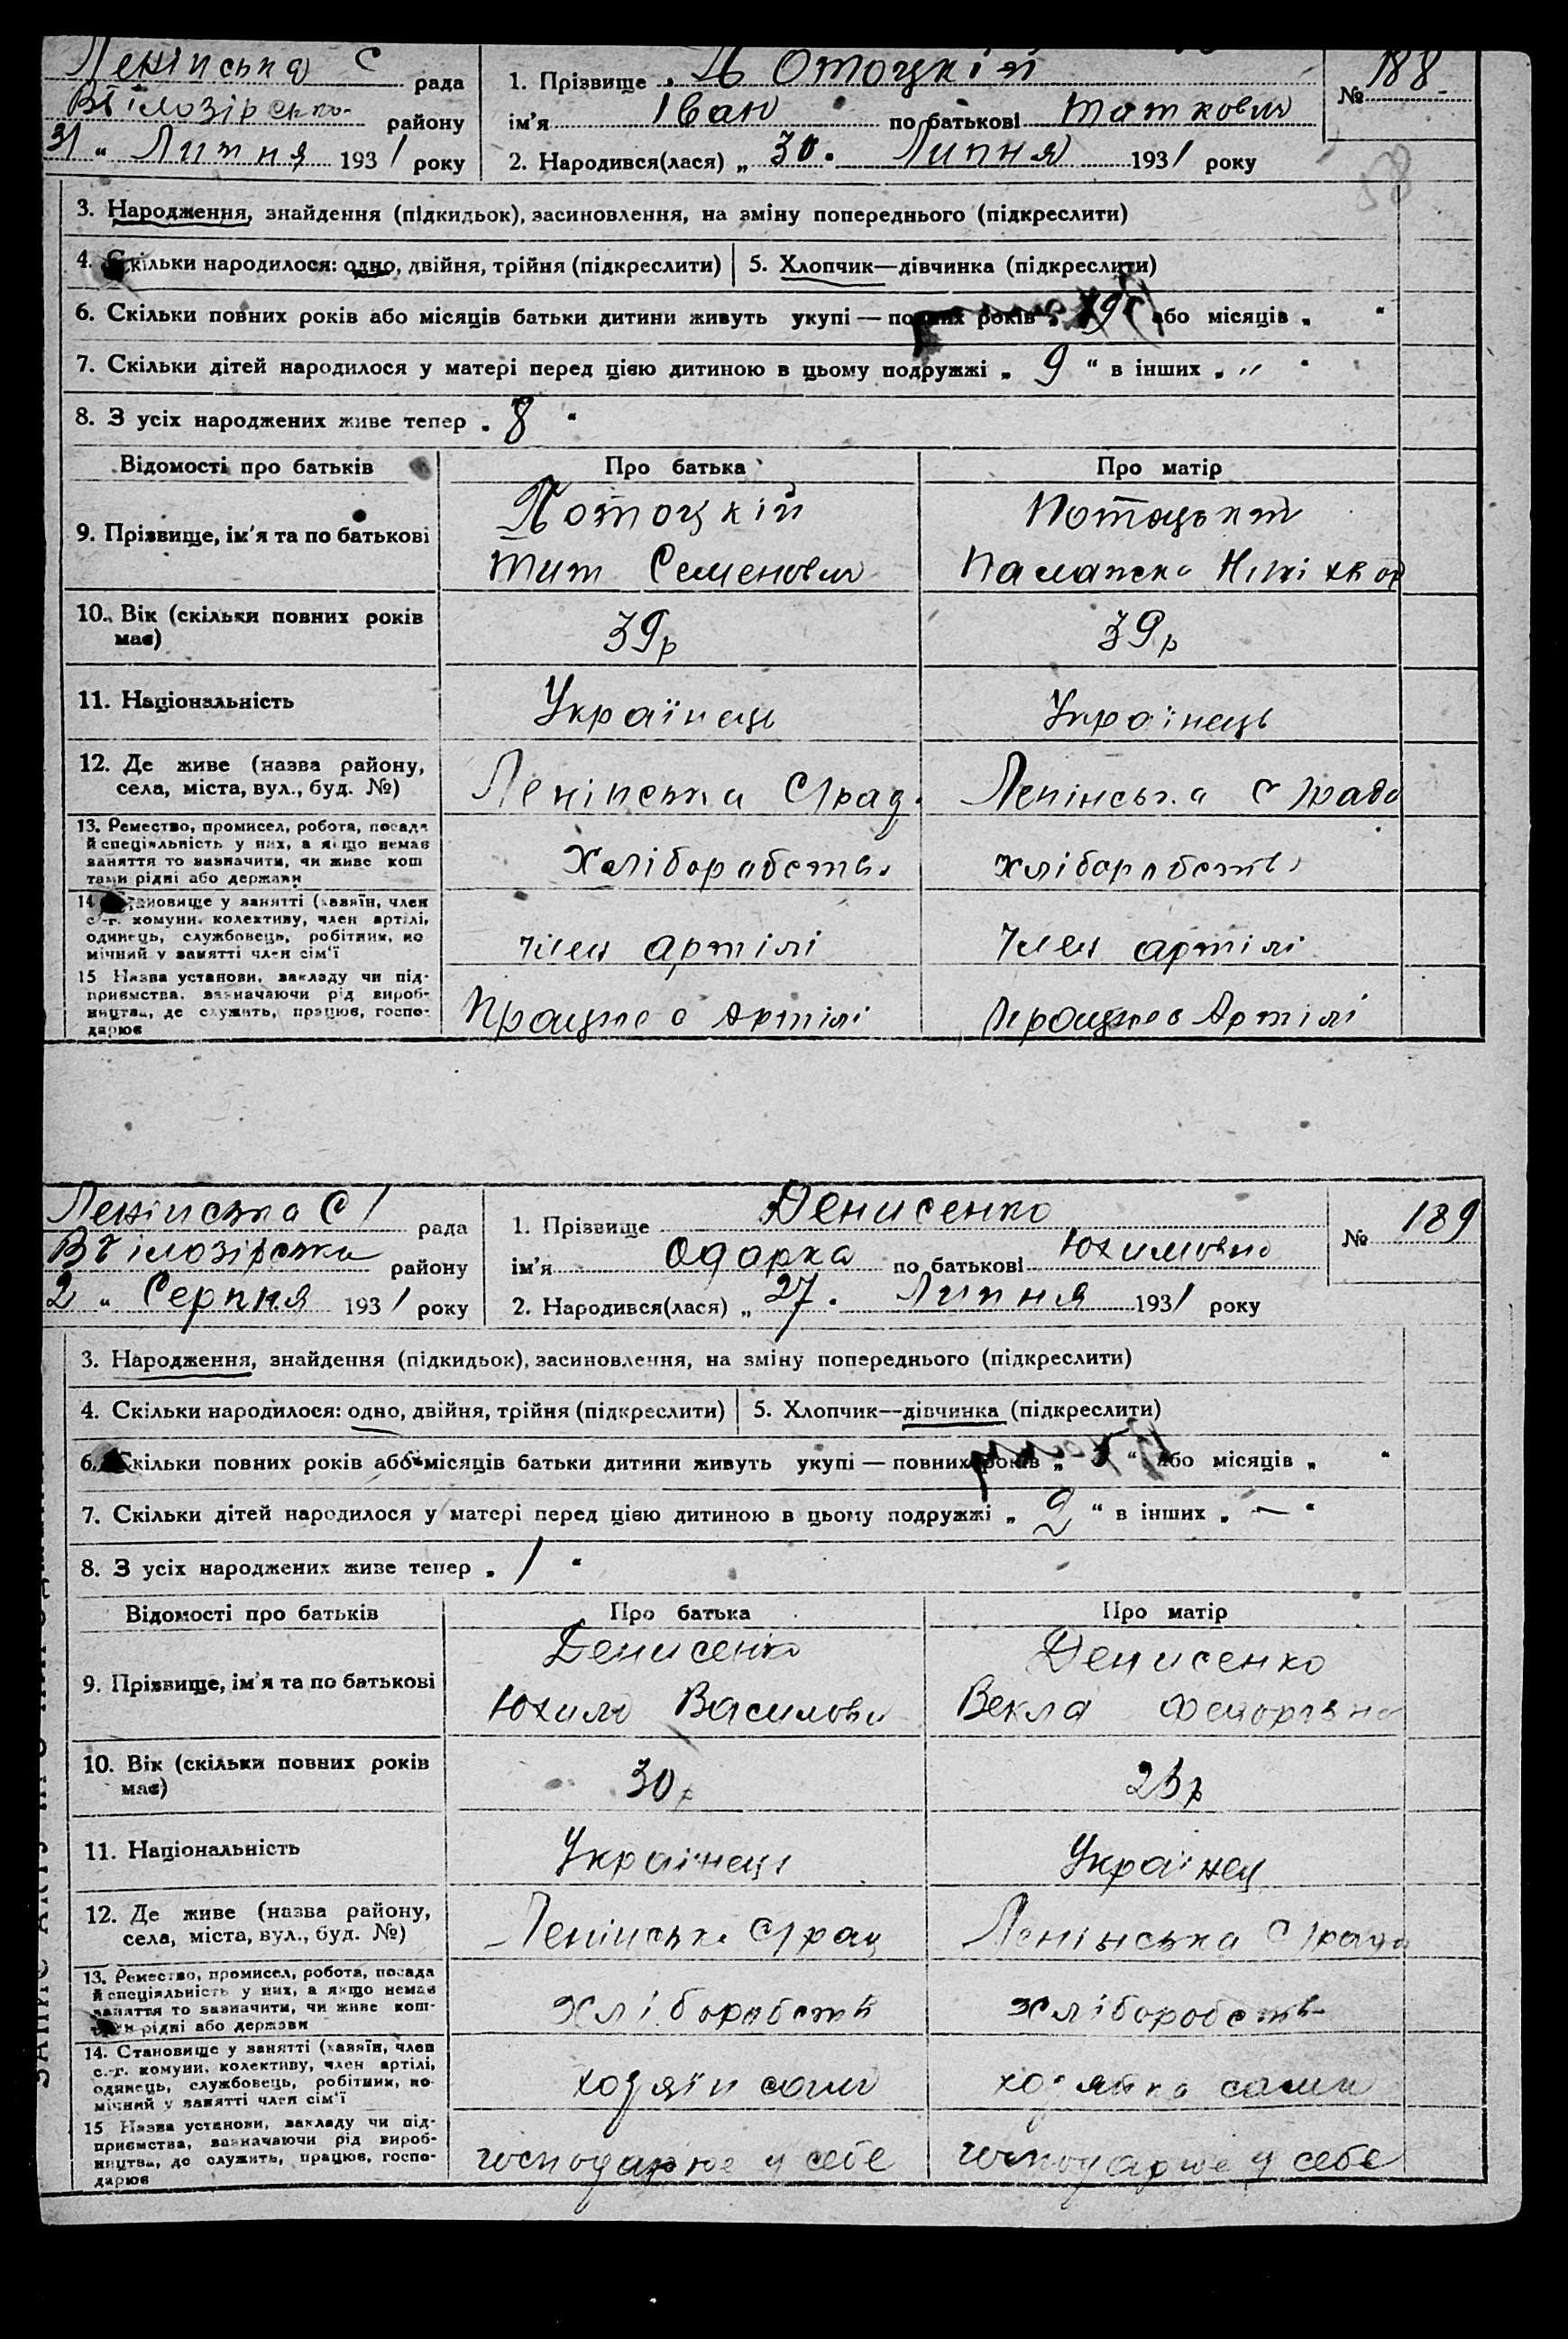 Ленінська С рада
В-Білозірсько- району
31 " Липня 1931 року
1. Прізвище Потоцкій
ім'я Іван по батькові Титкович
2. Народився(лася) „ 30. Липня 1931 року
№ 188
58
3. Народження, знайдення (підкидьок), засиновлення, на зміну попереднього (підкреслити)
4. Скільки народилося: одно, двійня, трійня (підкреслити) 5. Хлопчик—дівчинка (підкреслити)
6. Скільки повних років або місяців батьки дитини живуть укупі — повних років „ або місяців „ "
7. Скільки дітей народилося у матері перед цією дитиною в цьому подружжі „ 9 " в інших „ " "
8. З усіх народжених живе тепер „ 8 "
Відомості про батьків Про батька Про матір
9. Прізвище, ім'я та по батькові
Потоцкій
Тит Семенович
Потоцькій
Палажка
10. Вік (скільки повних років має) 39р 39р
11. Національність Українець Українець
12. Де живе (назва району, села, міста, вул., буд. №) Ленінська С/рад. Ленінська С/рада
13. Ремество, промисел, робота, посада й спеціяльність у них, а якщо немає заняття то зазначити, чи живе коштами рідні або держави
Хліборобств. хліборобств.
14. Становище у занятті (хазяїн, член с.-г. комуни, колективу, член артілі, одинець, службовець, робітник, помічний у занятті член сім'ї
член артілі член артілі
15 Назва установи, закладу чи підприємства, зазначаючи рід виробництва, де служить, працює, господарює
Працює в Артілі Працює в Артілі
Ленінська С/ рада
В-Білозірська району
2 " Серпня 1931 року
1. Прізвище Денисенко
ім'я Одарка по батькові Юхимовна
2. Народився(лася) „ 27. Липня 1931 року
№ 189
3. Народження, знайдення (підкидьок), засиновлення, на зміну попереднього (підкреслити)
4. Скільки народилося: одно, двійня, трійня (підкреслити) 5. Хлопчик—дівчинка (підкреслити)
6. Скільки повних років або місяців батьки дитини живуть укупі — повних років „ " або місяців „ "
7. Скільки дітей народилося у матері перед цією дитиною в цьому подружжі „ 2 " в інших „ — "
8. З усіх народжених живе тепер „ 1 "
Відомості про батьків Про батька Про матір
9. Прізвище, ім'я та по батькові
Денисенко
Юхим Василович
Денисенко
Векла Федорівна
10. Вік (скільки повних років має) 30р 25р
11. Національність Українець Українец
12. Де живе (назва району, села, міста, вул., буд. №) Ленінська С/рад Ленінська С/рада
13. Ремество, промисел, робота, посада й спеціяльність у них, а якщо немає заняття то зазначити, чи живе коштами рідні або держави
хліборобств хліборобств-
14. Становище у занятті (хазяїн, член с.-г. комуни, колективу, член артілі, одинець, службовець, робітник, помічний у занятті член сім'ї
хозяїн сам хозяйка сама
15 Назва установи, закладу чи підприємства, зазначаючи рід виробництва, де служить, працює, господарює
господарює у себе господарює у себе